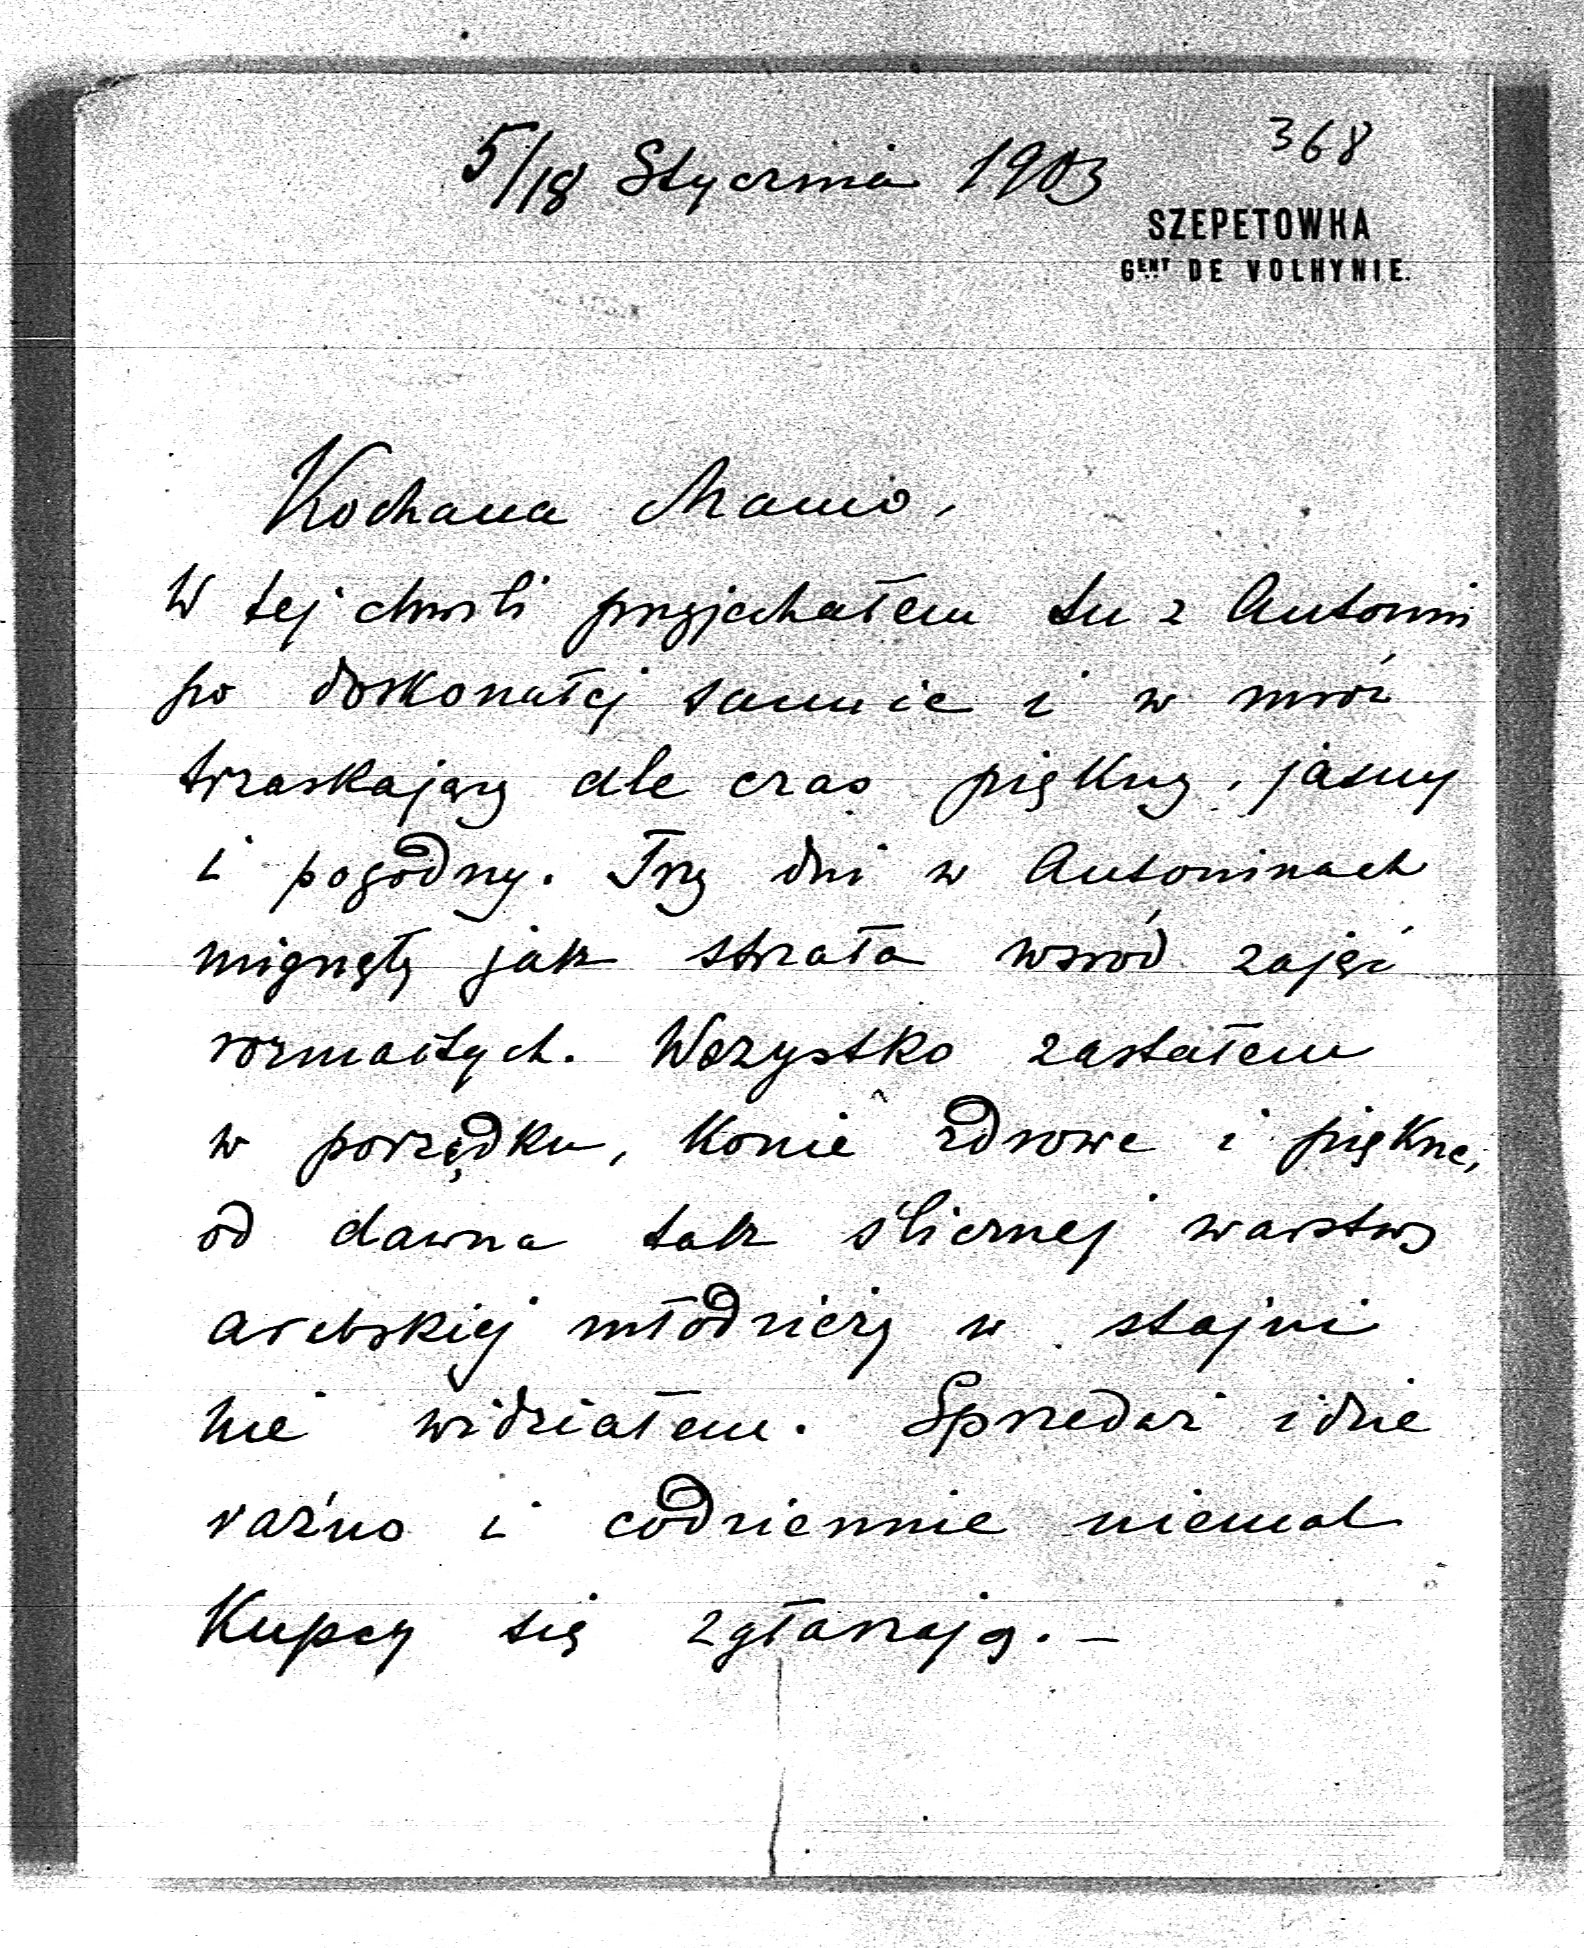 368
5/18 Stycznia 1903
SZEPETOWKA
GENT DE VOLHYNIE.
Kochana Mamo,
W tej chwili przyjechałem tu z Antonin
po doskonałej sannie i w mróz
trzaskający ale czas piękny, jasny
i pogodny. Trzy dni w Antoninach
mignęły jak strzała wśród zajęć
rozmaitych. Wszystko zastałem
w porządku, konie zdrowe i piękne,
od dawna tak ślicznej warstwy
arabskiej młodzieży w stajni
nie widziałem. Sprzedaż idzie
raźno i codziennie niemal
Kupcy się zgłaszają. —